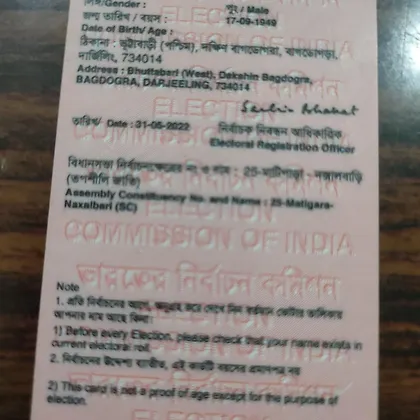 লিঙ্গ/Gender : পুং / Male
জন্ম তারিখ / বয়স : 17-09-1949
Date of Birth/ Age :
ঠিকানা : ভুট্টাবাড়ী (পশ্চিম), দক্ষিন বাগডোগরা, বাগডোগরা,
দার্জিলিং, 734014
Address : Bhuttabari (West), Dakshin Bagdogra,
BAGDOGRA, DARJEELING, 734014
তারিখ/ Date : 31-05-2022
নির্বাচক নিবন্ধন আধিকারিক
Electoral Registration Officer
বিধানসভা নির্বাচনক্ষেত্রের নং ও নাম : 25-মাটিগাড়া - নক্সালবাড়ি
(তপশীলি জাতি)
Assembly Constituency No. and Name : 25-Matigara-
Naxalbari (SC)
ELECTION
COMMISSION OF INDIA
ভারতের নির্বাচন কমিশন
Note
1. প্রতি নির্বাচনের আগে, অনুগ্রহ করে দেখে নিন বর্তমান ভোটার তালিকায়
আপনার নাম আছে কিনা।
1) Before every Election, please check that your name exists in
current electoral roll.
2. নির্বাচনের উদ্দেশ্য ব্যতীত, এই কার্ডটি বয়সের প্রমাণপত্র নয়
2) This card is not a proof of age except for the purpose of
election.